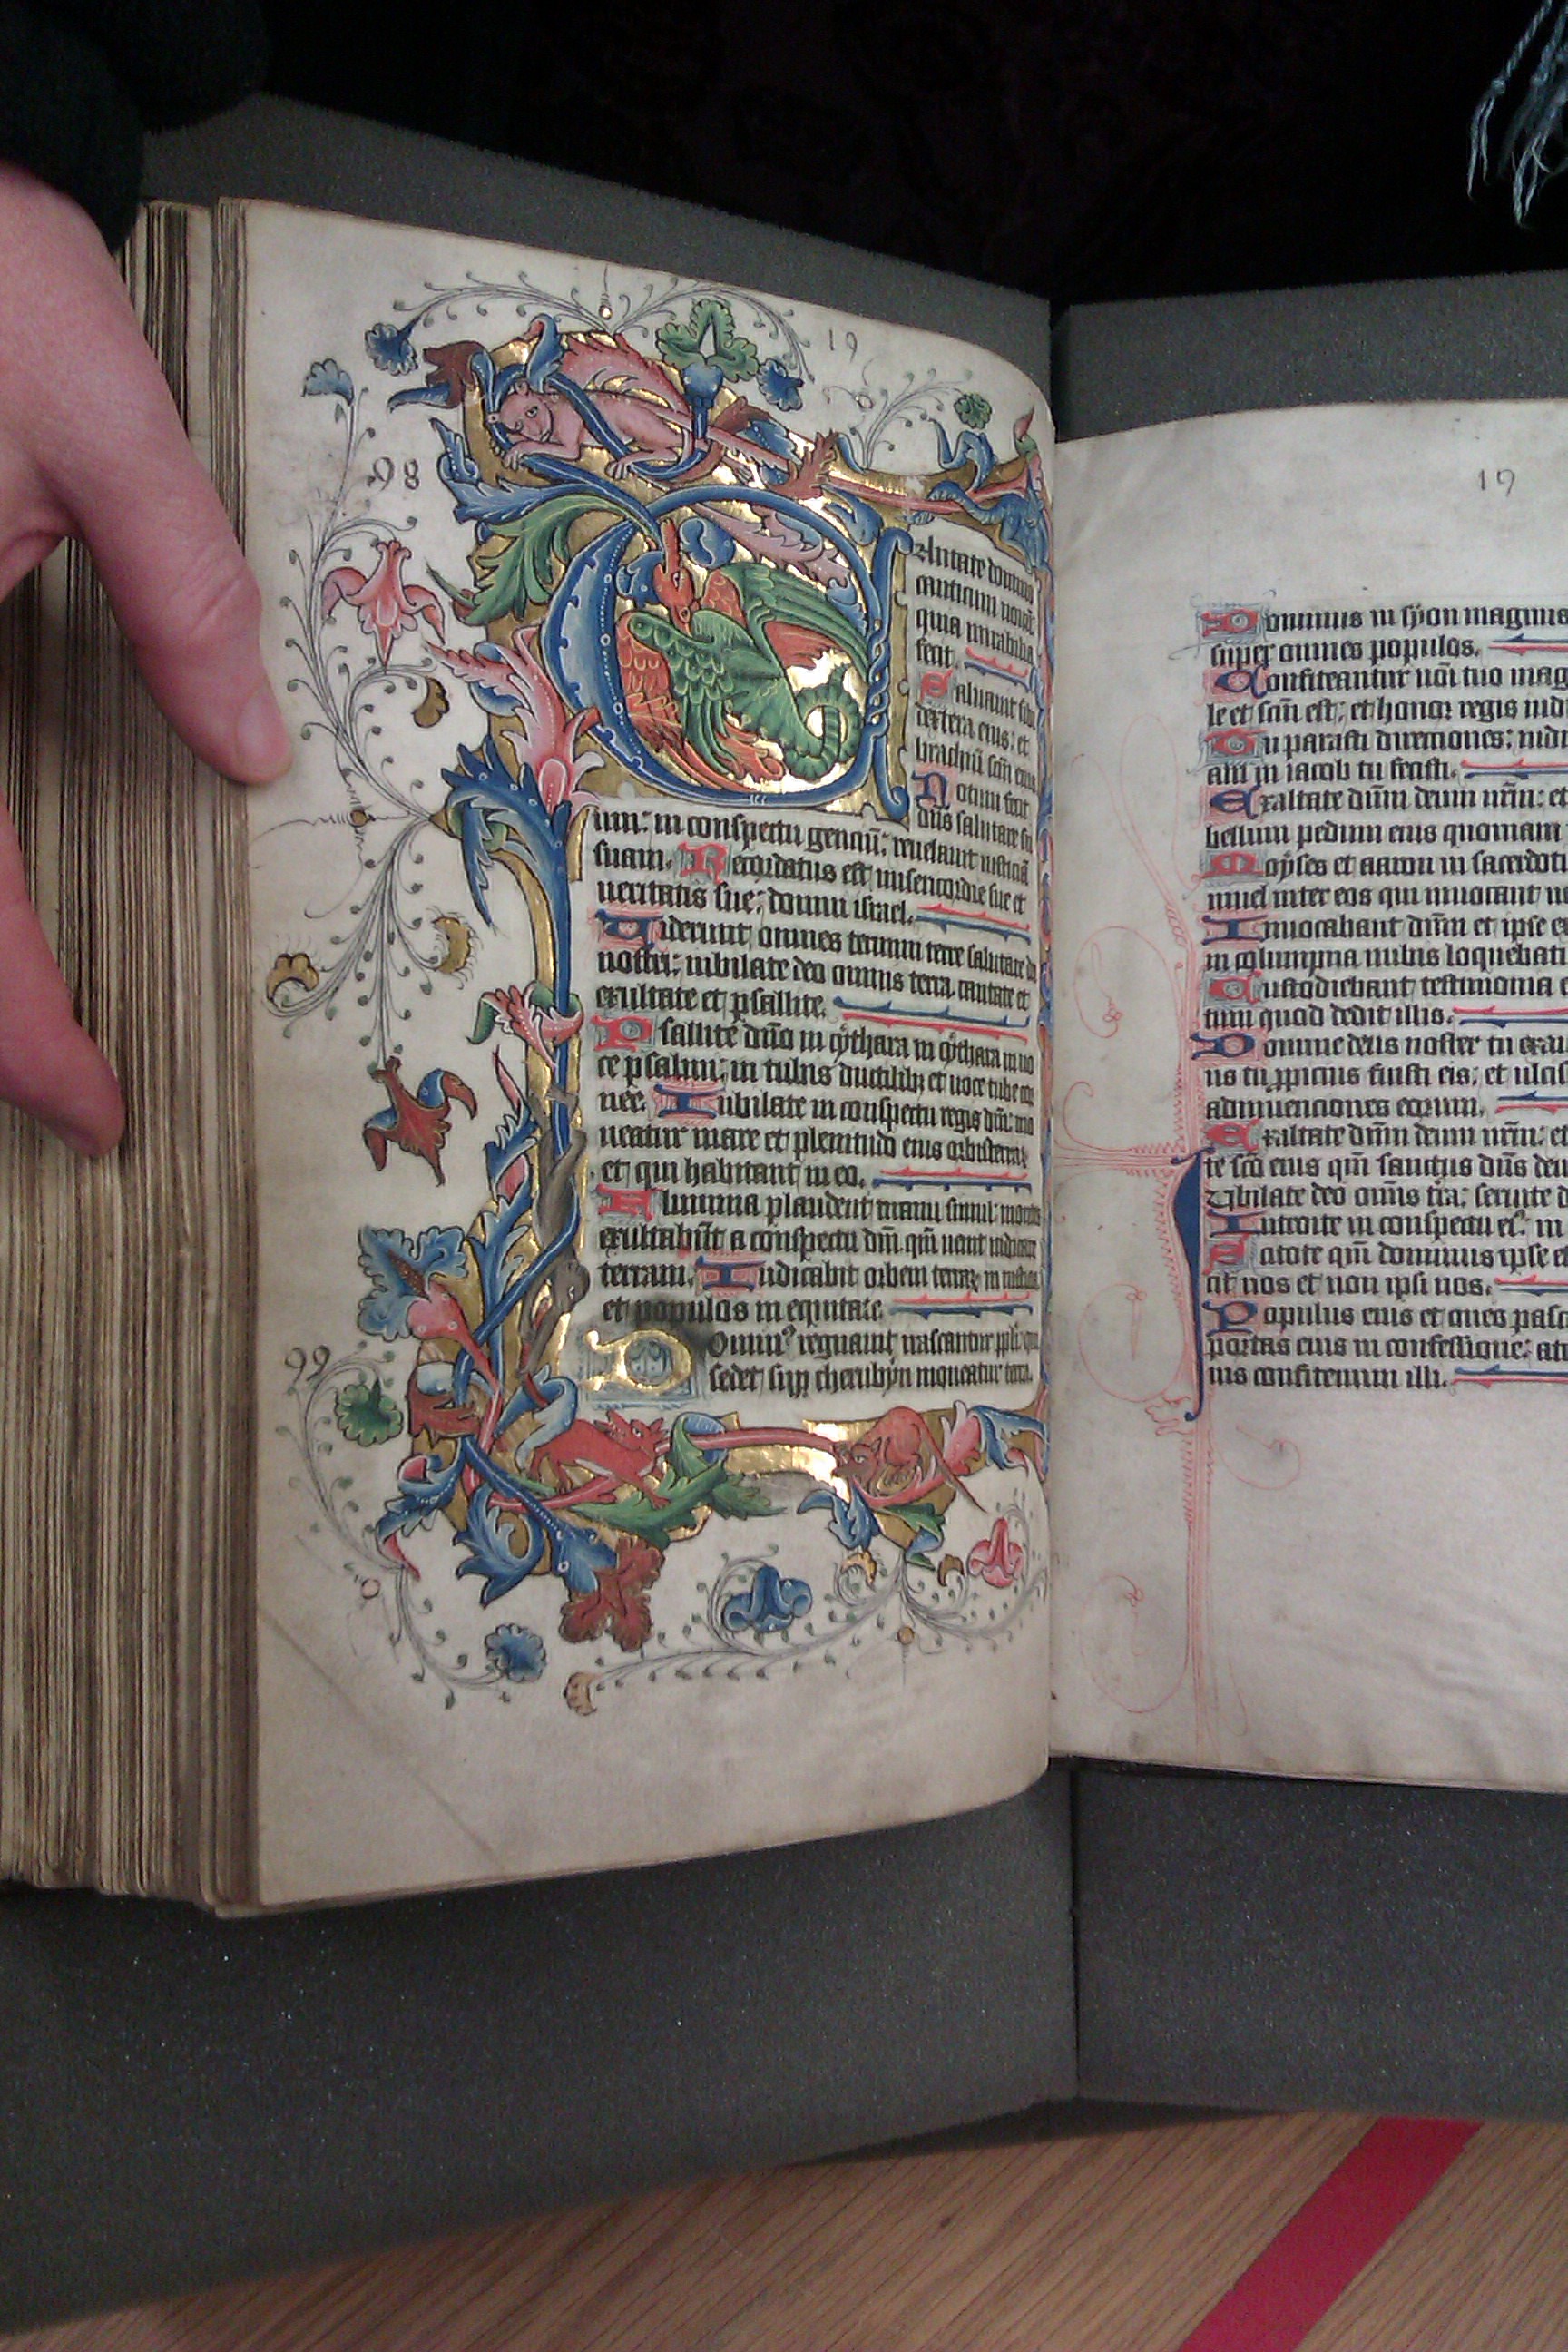 19
98
Cantate domino
canticum nouū
quia mirabilia
fecit.
Saluauit sibi
dextera eius: et
brachiū scm̄ eius
Notum fecit
dn̄s salutare su
um: in conspectu genciū: reuelauit iusticiā
suam. Recordatus est misericordie sue et
ueritatis sue: domui israel.
Viderunt omnes termini terre salutare dei
nostri: iubilate deo omnis terra cantate et
exultate et psallite.
Psallite dn̄o in cythara in cythara in uo
ce psalmi: in tubis ductilibꝫ et uoce tube cor
nee. Iubilate in conspectu regis dn̄i: mo
ueatur mare et plenitudo eius orbisterraꝝ
et qui habitant in eo.
Flumina plaudent manu simul: montes
exultabūt a conspectu dn̄i qm̄ uenit iudicare
terram. Iudicabit orbem terraꝝ in iusticia
et populos in equitate.
99
Dominꝰ regnauit irascantur pp̄li: qui
sedet sup̱ cherubyn moueatur terra.
19
Dominus in syon magnus
super omnes populos.
Confiteantur nōi tuo mag
le et scm̄ est: et honor regis iud
Tu parasti directiones: iudi
am in iacob tu fecisti.
Exaltate dn̄m deum nr̄m: et
bellum pedum eius quoniam
Moyses et aaron in sacerdoti
muel inter eos qui inuocant n
Inuocabant dn̄m et ipse e
in columpna nubis loquebat
Custodiebant testimonia e
tum quod dedit illis.
Domine deus noster tu exau
us tu ꝓpicius fuisti eis: et ulcis
adinuenciones eorum.
Exaltate dn̄m deum nr̄m: et
te scō eius qm̄ sanctus dn̄s deu
Iubilate deo om̄is tr̄a: seruite d
Introite in conspectu eiꝰ: in
Scitote qm̄ dominus ipse e
cit nos et non ipsi nos.
Populus eius et oues pasc
portas eius in confessione: at
nis confitemini illi.